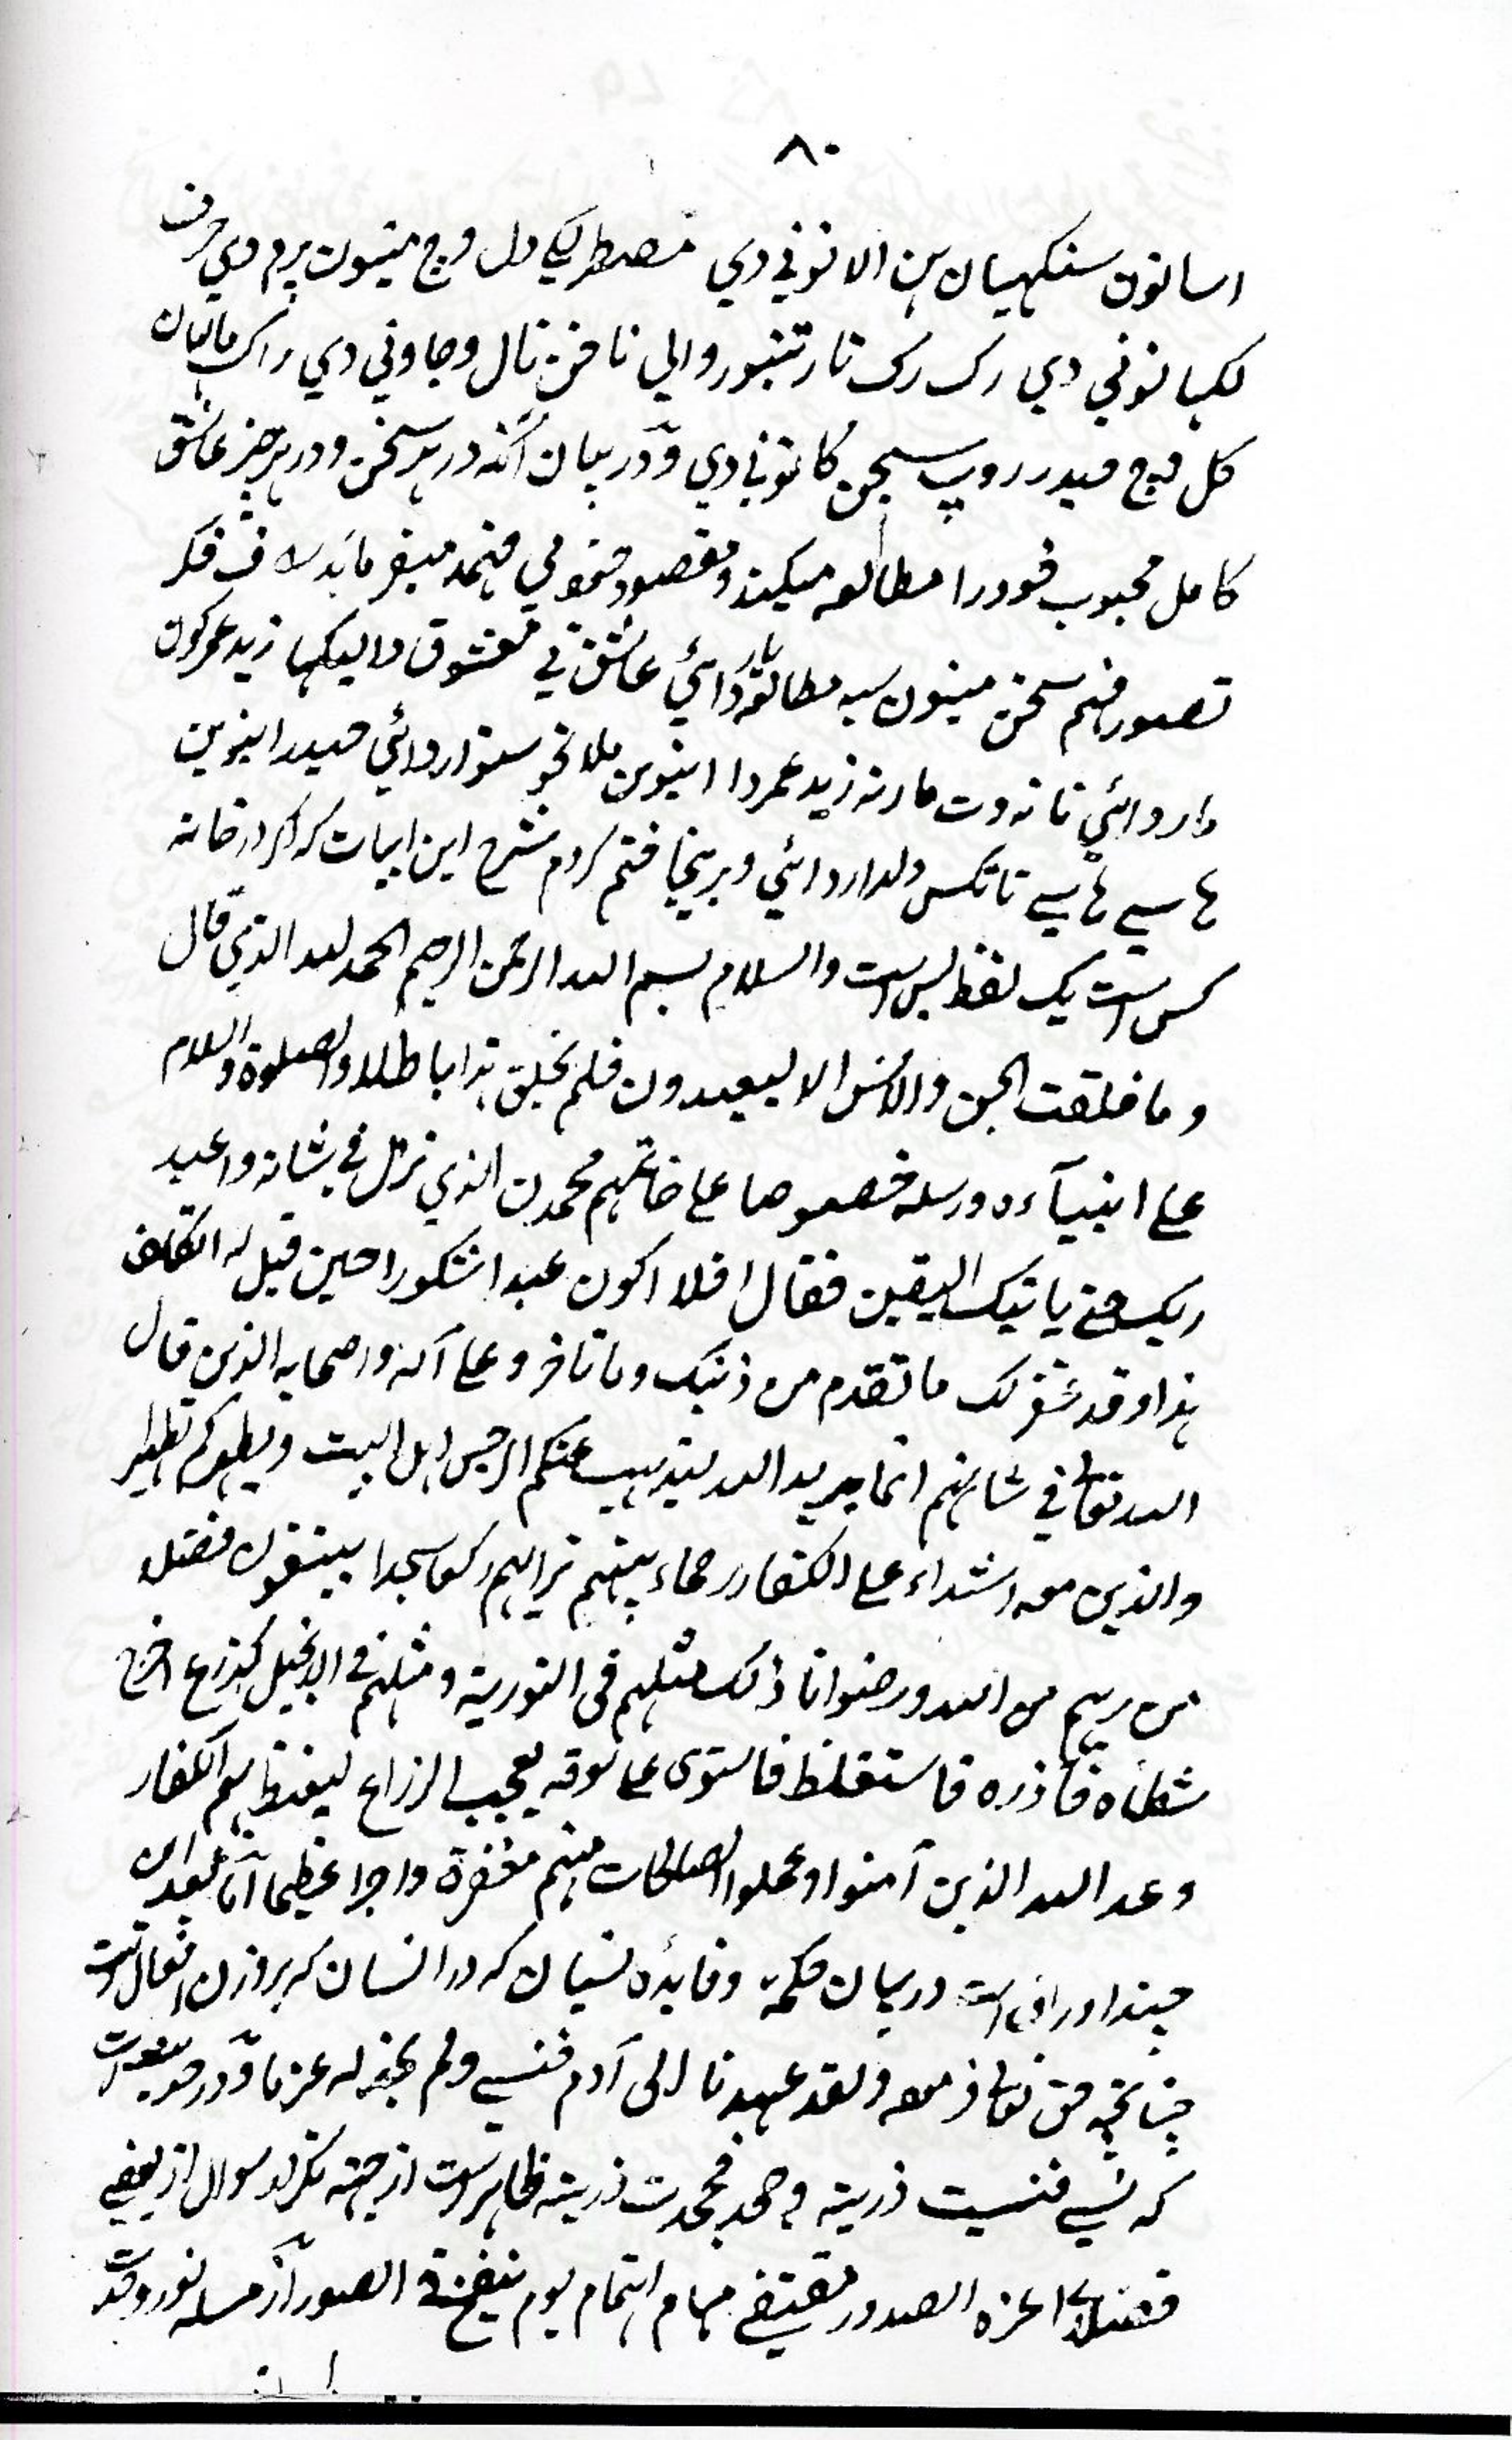 ۸۰
اسانون سنکهیان ہن الانونی دي خط لکے دل وچ مینون پرم دي حرف
لکہانونی دي رک رک تار تنبور والي ناخن نال وجاونی دي راک مالیان
کل وچ حیدر روپ سجن کانونی دي و در بیان آنکه در ہر سخن و در ہر چیز عاشق
کامل محبوب خود را مطالعه میکند و مقصود خود می فہمد میفرماید
تصور فہم سخن مینون سبه مطالعه یار دائي عاشق نے معشوق دا لیکہا زید عمر کون
مار دائي نا نه وت مارنه زید عمر دا اینوین ملا نحو سنوار دائي حیدر اینوین
ہاسے ہاسے تانکس دلدار دائي و برینجا ختم کردم شرح این ابیات که اکر در خانه
کس است یک لفظ بس است والسلام بسم الله الرحمن الرحیم الحمد لله الذي قال
و ما خلقت الجن والانس الا لیعبدون فلم یخلق ہذا باطلا والصلوة والسلام
علے انبیآءه ورسله خصوصا علے خاتمہم محمدن الذي نزل في شانه واعبد
ربک حتے یاتیک الیقین فقال افلا اکون عبدا شکورا حین قیل له اتکلف
ہذا وقد غفر لک ما تقدم من ذنبک وما تاخر وعلے آله واصحابه الذین قال
الله تعالے في شانہم انما یرید الله لیذہب عنکم الرجس اہل البیت ویطہرکم تطہیرا
والذین معه اشداء علے الکفار رحماء بینہم تراہم رکعا سجدا یبتغون فضلا
من ربہم من الله ورضوانا ذالک مثلہم في التوریة ومثلہم في الانجیل کزرع اخرج
شطأه فآزره فاستغلظ فاستوی علے سوقه یعجب الزراع لیغیظ بہم الکفار
وعد الله الذین آمنوا وعملوا الصالحات منہم مغفرة واجرا عظیما اما بعد این
چند اوراق است در بیان حکمة و فائده نسیان که در انسان که بر وزن افعال است
چنانچه حق تعالے فرموده ولقد عہدنا الی آدم فنسے ولم نجد له عزما و در حدیث است
که نسے فنسیت ذریته و جحد فجحدت ذریته ظاہر است از جہته تکرار سوال از بعضے
فضلاء اعزه الصدور مقتضے مہام اہتمام یوم ینفخ في الصور